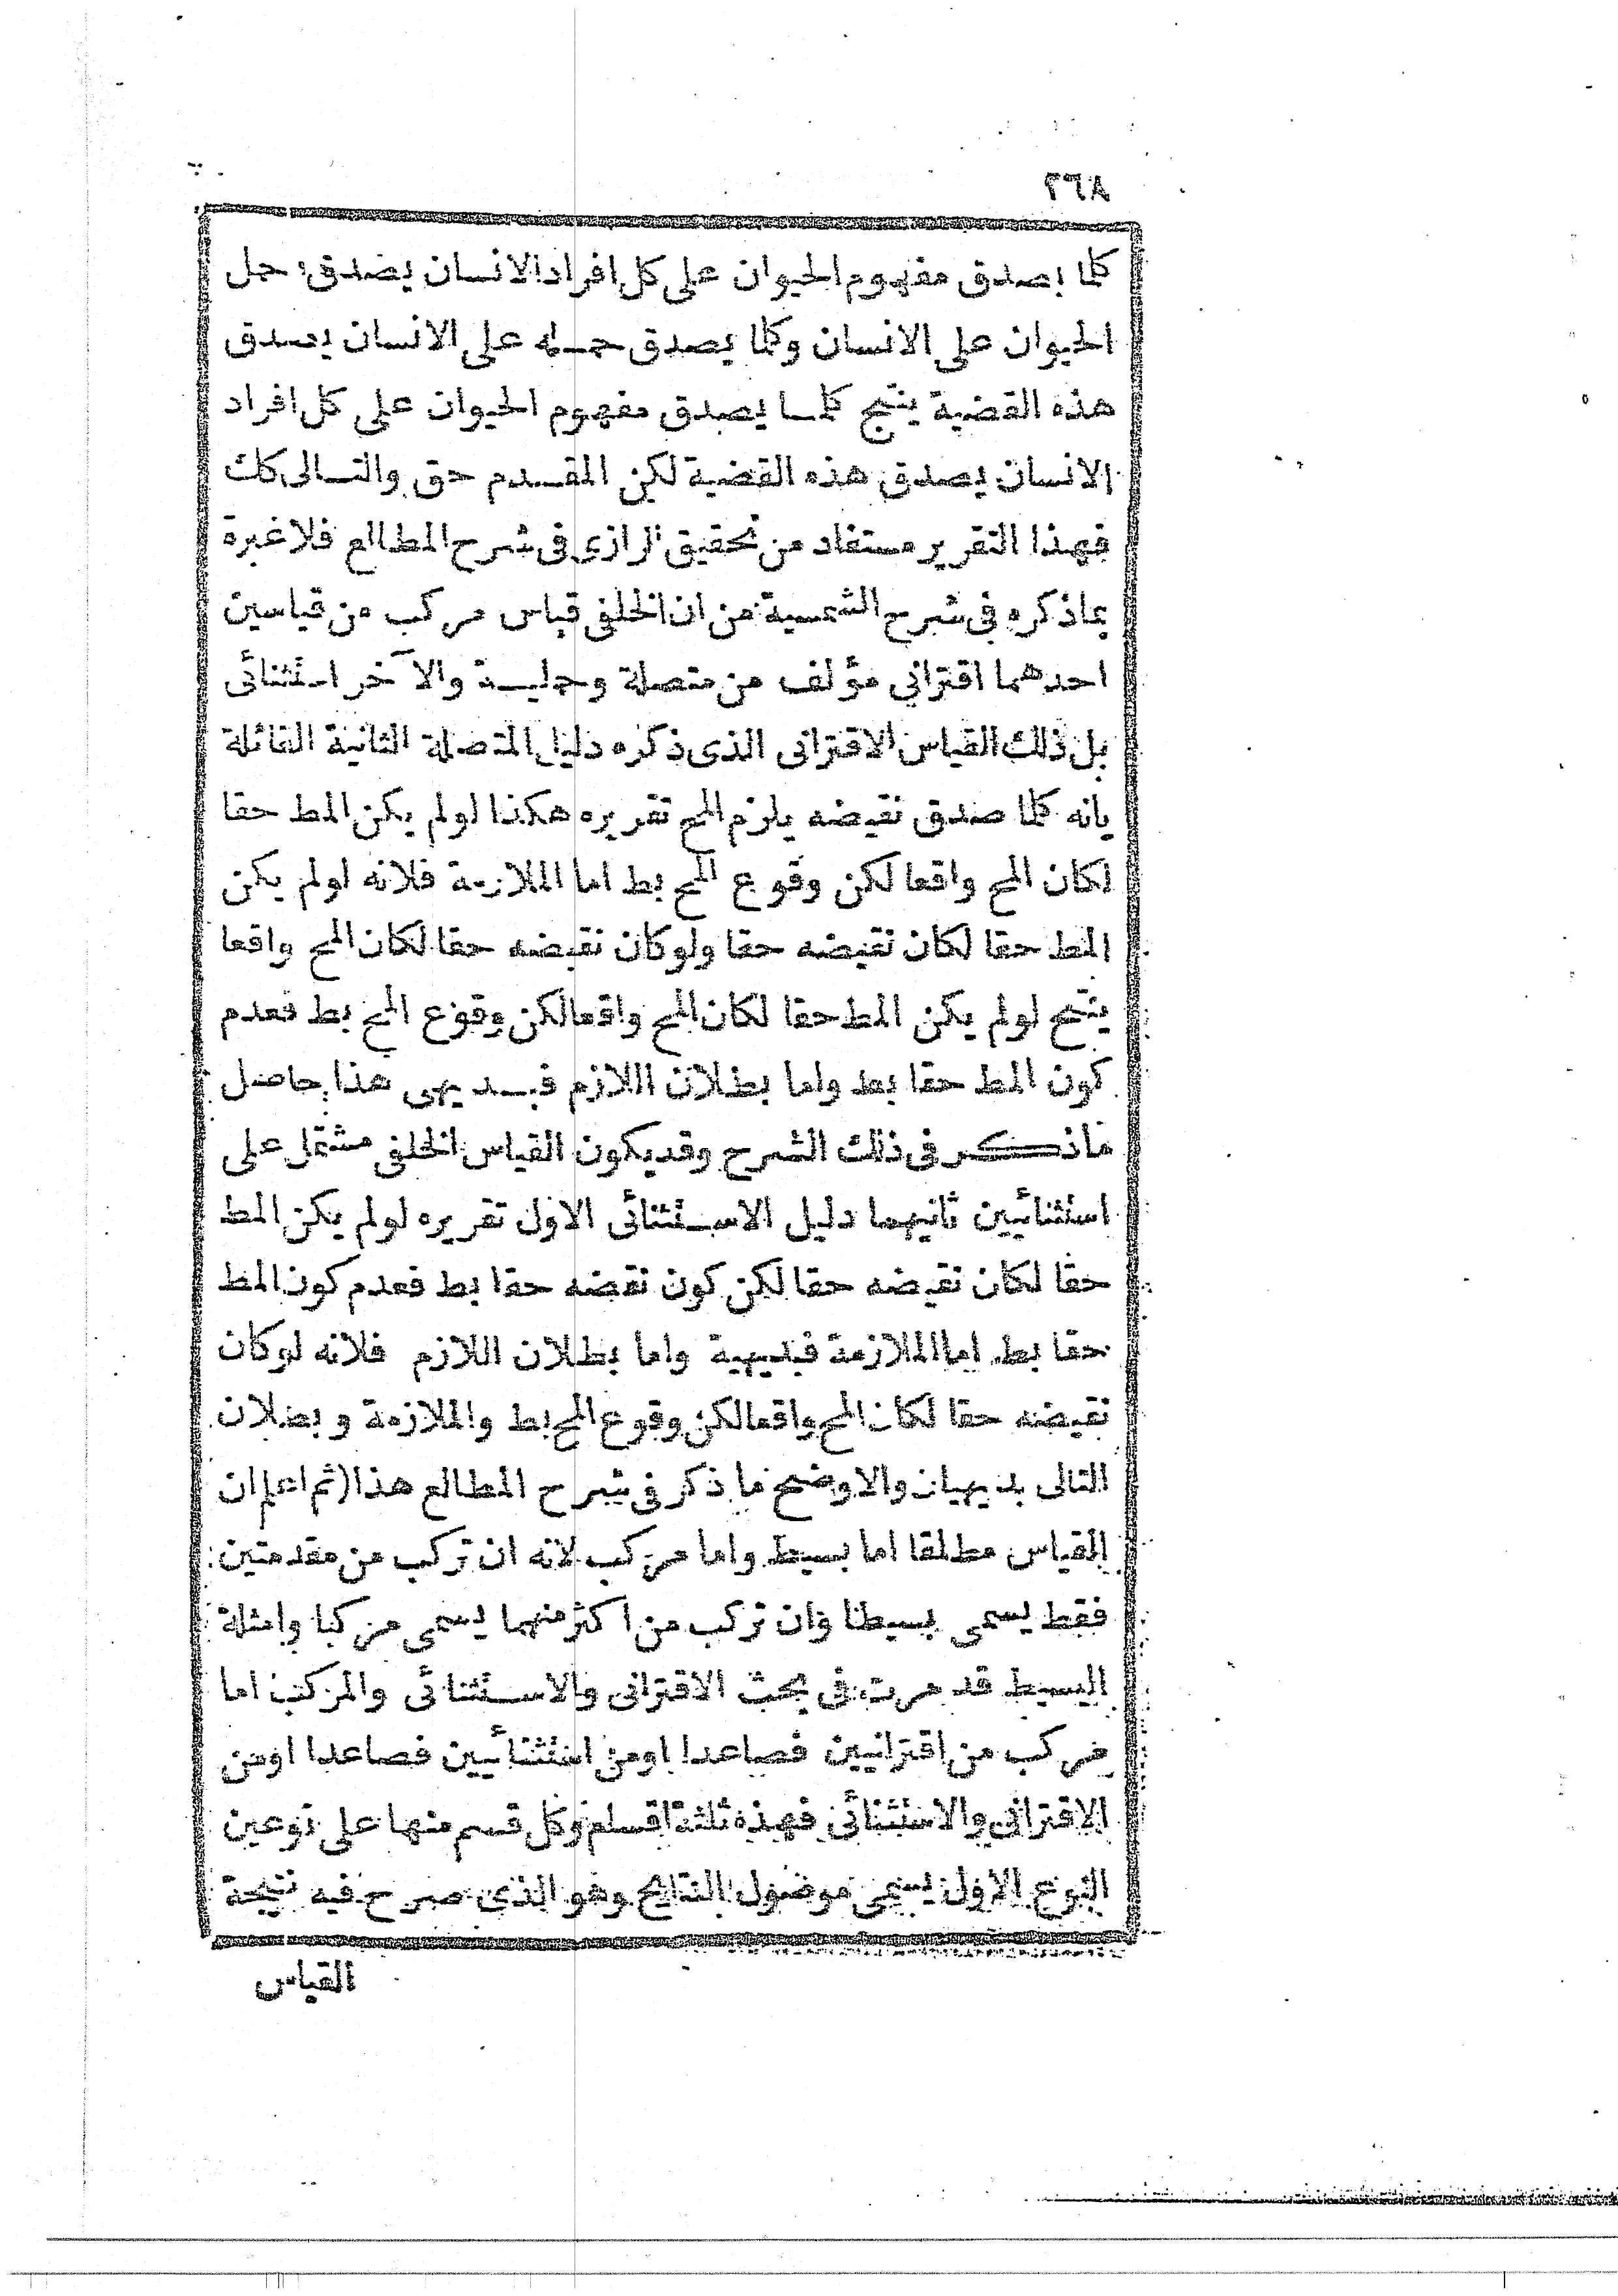 ٢٦٨
كلما يصدق مفهوم الحيوان على كل افراد الانسان يصدق حمل
الحيوان على الانسان وكلما يصدق حمله على الانسان يصدق
هذه القضية ينتج كلما يصدق مفهوم الحيوان على كل افراد
الانسان يصدق هذه القضية لكن المقدم حق والتالى كك
فهذا التقرير مستفاد من تحقيق الرازى فى شرح المطالع فلا عبرة
بما ذكره فى شرح الشمسية من ان الخلفى قياس مركب من قياسين
احدهما اقترانى مؤلف من متصلة وحملية والآخر استثنائى
بل ذلك القياس الاقترانى الذى ذكره دليل المتصلة الثانية القائلة
بانه كلما صدق نقيضه يلزم المح تقريره هكذا لو لم يكن المط حقا
لكان المح واقعا لكن وقوع المح بط اما الملازمة فلانه لو لم يكن
المط حقا لكان نقيضه حقا ولو كان نقيضه حقا لكان المح واقعا
ينتج لو لم يكن المط حقا لكان المح واقعا لكن وقوع المح بط فعدم
كون المط حقا بط واما بطلان اللازم فبديهى هذا حاصل
ماذكر فى ذلك الشرح وقد يكون القياس الخلفى مشتمل على
استثنائيين ثانيهما دليل الاستثنائى الاول تقريره لو لم يكن المط
حقا لكان نقيضه حقا لكن كون نقضه حقا بط فعدم كون المط
حقا بط اما الملازمة فبديهية واما بطلان اللازم فلانه لو كان
نقيضه حقا لكان المح واقعا لكن وقوع المح بط والملازمة وبطلان
التالى بديهيان والاوضح ما ذكر فى شرح المطالع هذا (ثم اعلم ان
القياس مطلقا اما بسيط واما مركب لانه ان تركب من مقدمتين
فقط يسمى بسيطا وان تركب من اكثر منهما يسمى مركبا وامثلة
البسيط قد مرت فى بحث الاقترانى والاستثنائى والمركب اما
مركب من اقترانيين فصاعدا او من استثنائيين فصاعدا او من
الاقترانى والاستثنائى فهذه ثلثة اقسام وكل قسم منها على نوعين
النوع الاول يسمى موصول النتايج وهو الذى صرح فيه نتيجة
القياس